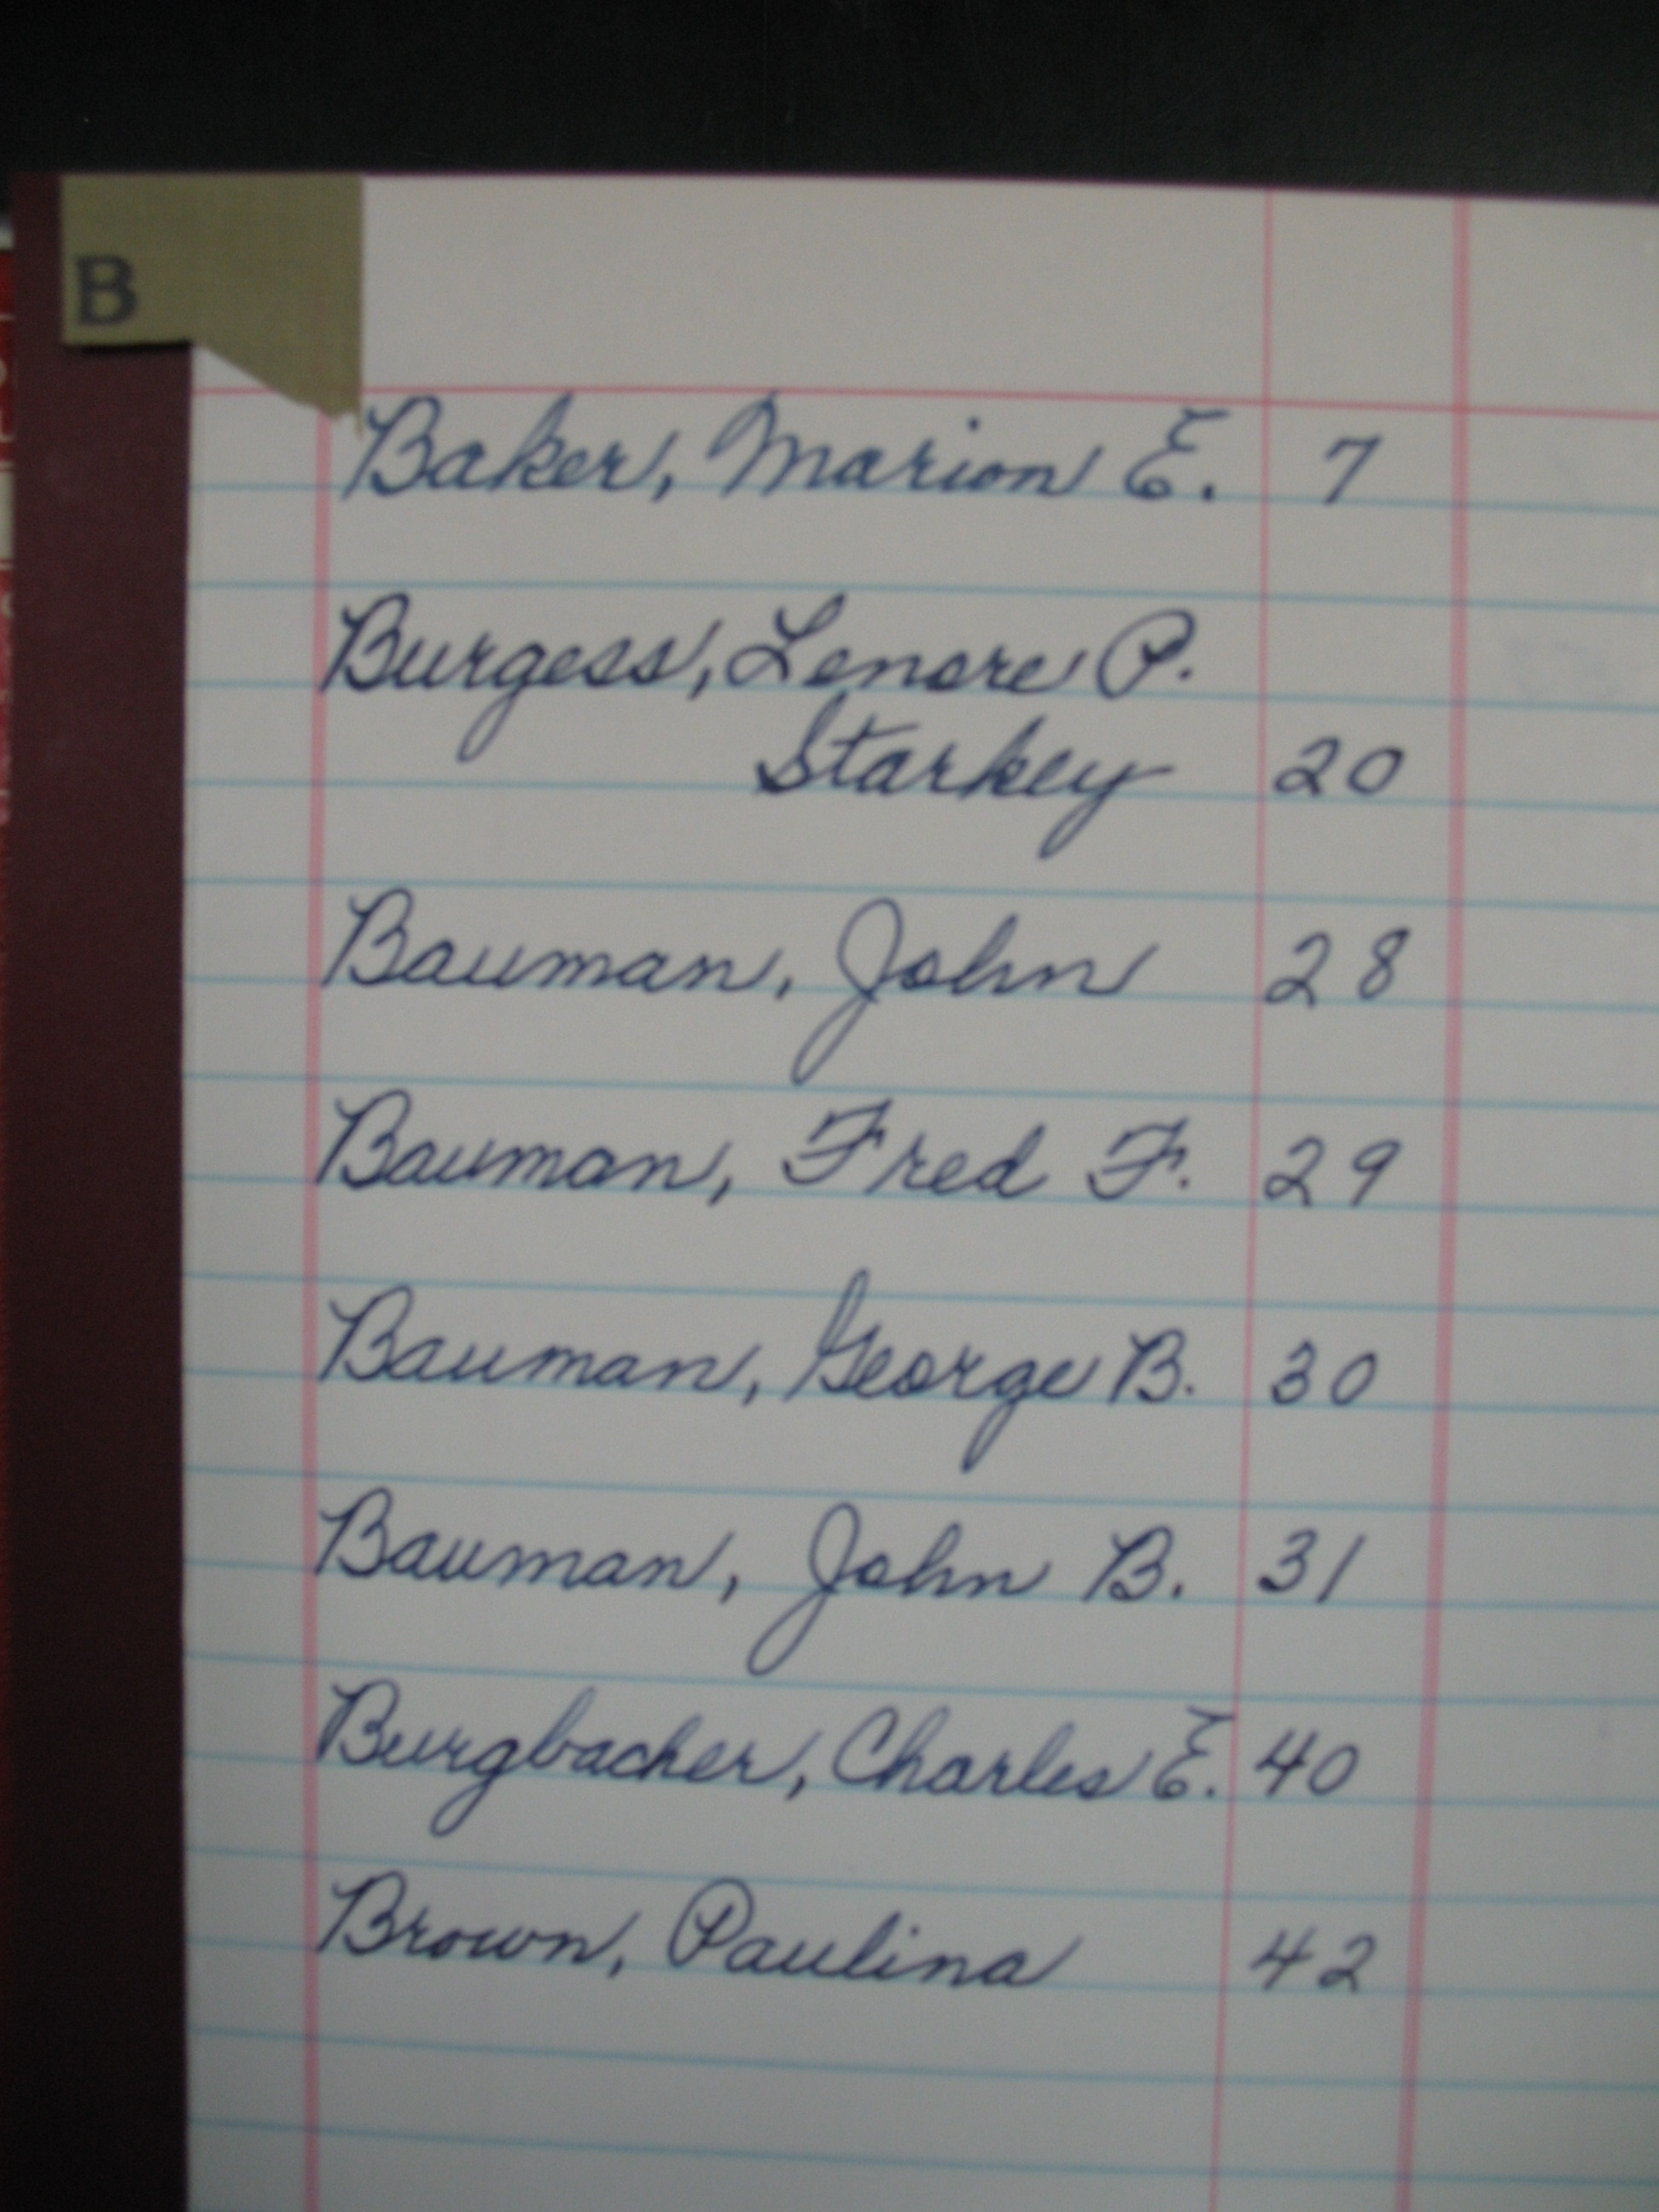 B
Baker, Marion E. 7
Burgess, Lenore P.
Starkey 20
Bauman, John 28
Bauman, Fred F. 29
Bauman, George B. 30
Bauman, John B. 31
Burgbacher, Charles E. 40
Brown, Paulina 42